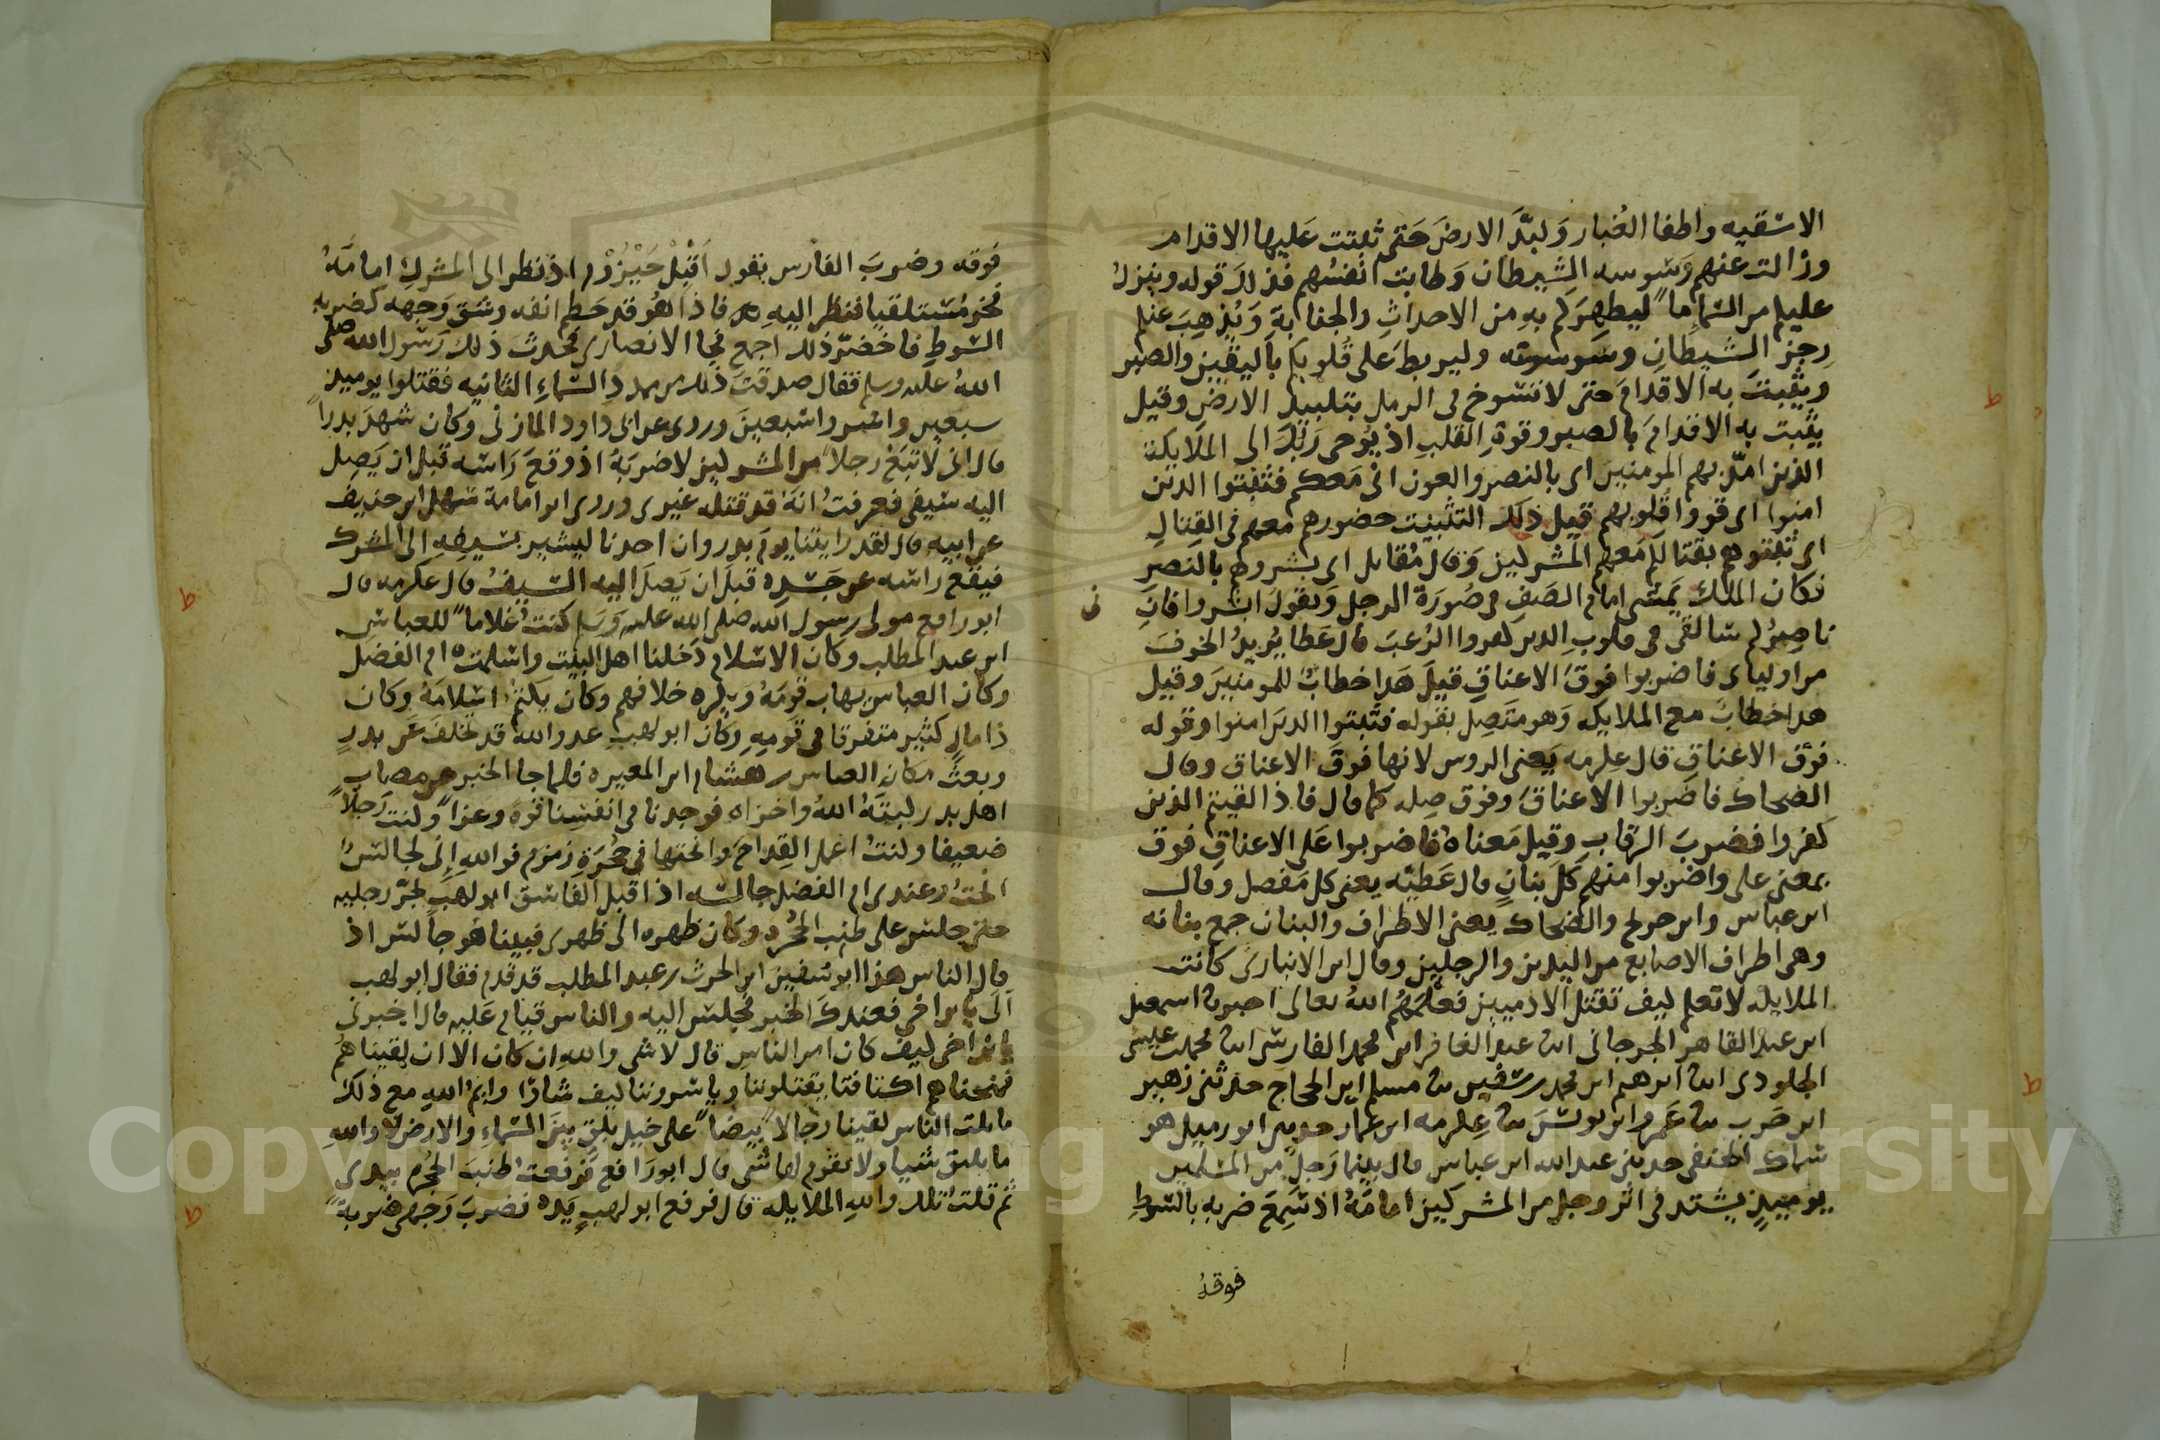 الاسقيه واطفا الغُبار وَلبَّدَ الارضَ حَتى ثبتت عَليها الاقدام
وزالت عنهم وَسوسه الشيطان وَطابت انفسُهم فذلك قوله وينزل
عليكم من السماء ما ليطهركم به من الاحداثِ والجنابة وَيُذهِبَ عنكم
رجز الشيطانِ وسوسته وليربط على قُلوبكم باليقين والصبر
ويثبت به الاقدامَ حتى لا تسوخ في الرمل بتلبيد الارض وقيل
يثبت به الاقدامَ بالصبر وقوة القلب اذ يُوحى رَبُّكَ الى الملايكة
الذين امدّ بهم المومنين اى بالنصر والعون انى مَعكم فثبتوا الذين
امنوا اى قووا قلوبهم قيل ذلك التثبيت حضورهم معهم في القتالِ
اى ثبتوهم بقتالكم مَعهم المشركين وَقال مُقاتل اى بشروهم بالنصر
فكان الملك يمشى امام الصَف في صَورَة الرجل وَيقول ابشروا فان
ناصِرُكم سالقى في قلوب الذين كفروا الرُعبَ قال عَطا يُريدُ الخوفَ
من اوليائ فاضربوا فوقَ الاعناقِ قيلَ هَذا خطابٌ للمومنين وقيل
هذا خطابٌ مع الملايكه وَهو متصِل بقوله فثبتوا الذين امنوا وقوله
فوق الاعناق قال عكرمه يَعنى الروس لانها فوقَ الاعناق وقال
الضحاك فاضربوا الاعناقَ وفوق صِله كما قال فاذا لقيتم الذين
كفروا فضربَ الرقابِ وقيل مَعناه فاضربوا عَلى الاعناقِ فوق
بمعنى على واضربوا منهم كلَّ بنانٍ قال عَطيّه يعنى كل مَفصل وقال
ابن عباس وابن جريج والضحاك يعنى الاطراف والبنان جمع بنانه
وهى اطراف الاصابع من اليدين والرجلين وقال ابن الانبارى كانت
الملايكه لا تعلم كيف تقتل الادميين فعلّمهُم اللهُ تعالى اخبرنا اسمعيل
ابن عبد القاهر الجرجانى انا عبد الغافر ابن محمد الفارسى انا محمد بن عيسى
الجلودى انا ابرهيم ابن محمد بن سفين نا مسلم ابن الحجاج حدثنى زهير
ابن حَرب نا عَمرو ابن يونسَ نا عِكرمه ابن عمار حدثنى ابو زميل هو
سماك الحنفى حدثنى عبد الله ابن عباس قال بينما رَجل من المسلمين
يوميذٍ يشتد في اثر رجل من المشركين امامَهُ اذ سَمِعَ ضربه بالسَوطِ
فوقهُ
فوقه وضربَ الفارس يقول اَقبِلْ حَيْزُوْم اذ نظر الى المشركِ امامَهُ
فخر مُستلقيا فنظر اليهِ فاذا هُو قد حَطم انفه وشق وَجهه كضربه
السَوطِ فاخضرّ ذلك اجمع فجا الانصارى فحدث ذلك رَسول الله صلى
اللهُ عليه وسلم فقال صدقتَ ذلك من مددِ السماءِ الثانيه فقتلوا يوميذ
سبعين واسروا سبعينَ وروى عن ابى داود المازنى وكان شهدَ بدراً
قال انى لاتبَعُ رجلاً من المشركين لاضربَهُ اذ وقعَ رَاسه قبل ان يَصِل
اليه سَيفى فعرفتُ انهُ قد قتله غيرى وروى ابو امامة سَهل ابن حنيف
عن ابيهِ قال لقد رايتنا يومَ بدر وان احدنا ليشير بسَيفهِ الى المشرك
فيقَع راسه عن جَسَده قبل ان يَصلَ اليه السَيفُ قال عكرمه قال
ابو رافع مولى رسول الله صلى الله عليه وَسَلم كنتُ غلاماً للعباس
ابن عبد المطلب وكان الاسلام دَخلنا اهل البيت واسلمت ام الفضل
وكان العباس يهاب قومَهُ ويكره خلافهم وكان يكتمُ اسلامَهُ وكان
ذا مالٍ كثير متفرقا في قومِهِ وكان ابو لهب عدو الله قد تخلف عَن بدرٍ
وبعثَ مكانه العباس بن هشام ابن المغيره فلما جا الخبر عن مصاب
اهل بدر كبتهُ اللهُ واخزاه فوجدنا في انفسنا قوة وعزاً وكنت رَجلاً
ضعيفا وكنتُ اعمل القِداحَ وانحتها في حُجرَةِ زمزم فوالله اِنى لجالسٌ
انحتُ وعندى ام الفضل جالسه اذ اقبل الفاسق ابو لهب يجرّ رجليه
حتى جلس على طنب الحُجره وكان ظهره الى ظهرى فبينا هُو جالس اذ
قال الناس هذا ابو سفين ابن الحرث بن عبد المطلب قد قدم فقال ابو لهب
اَلىّ يا بن اخى فعندك الخبر فجلس اليه والناس قيام عَليه قال اخبرنى
يا بن اخى كيف كان امر الناس قال لا شى والله ان كان الا ان لقيناهُم
فمنحناهم اكتافنا يقتلوننا وياسروننا كيف شاوا وايمُ الله مع ذلك
ما لمت الناس لقينا رجالا بيضاً على خيل بلق بين السَماءِ والارض لا واللهِ
ما تليق شيا ولا يقوم لها شى قال ابو رافع فرفعت طنبَ الحُجره بيدى
ثم قلت تلك والله الملايكه قال فرفع ابو لهب يَده فضربَ وَجهى ضربة